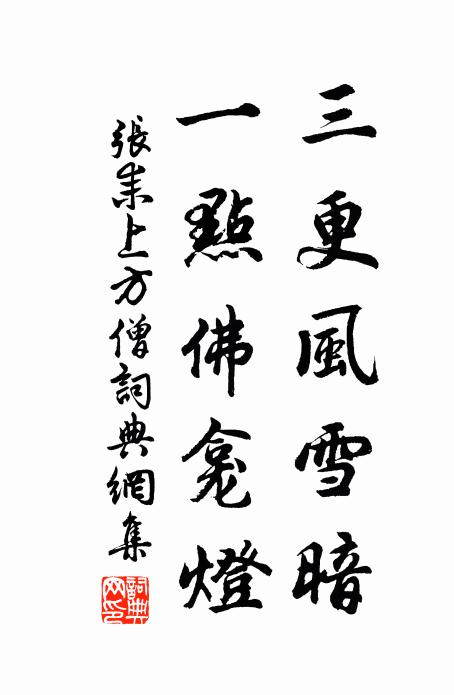 三更風雪暗
一點佛龕燈
張耒上方僧詞典網集
詞典網印